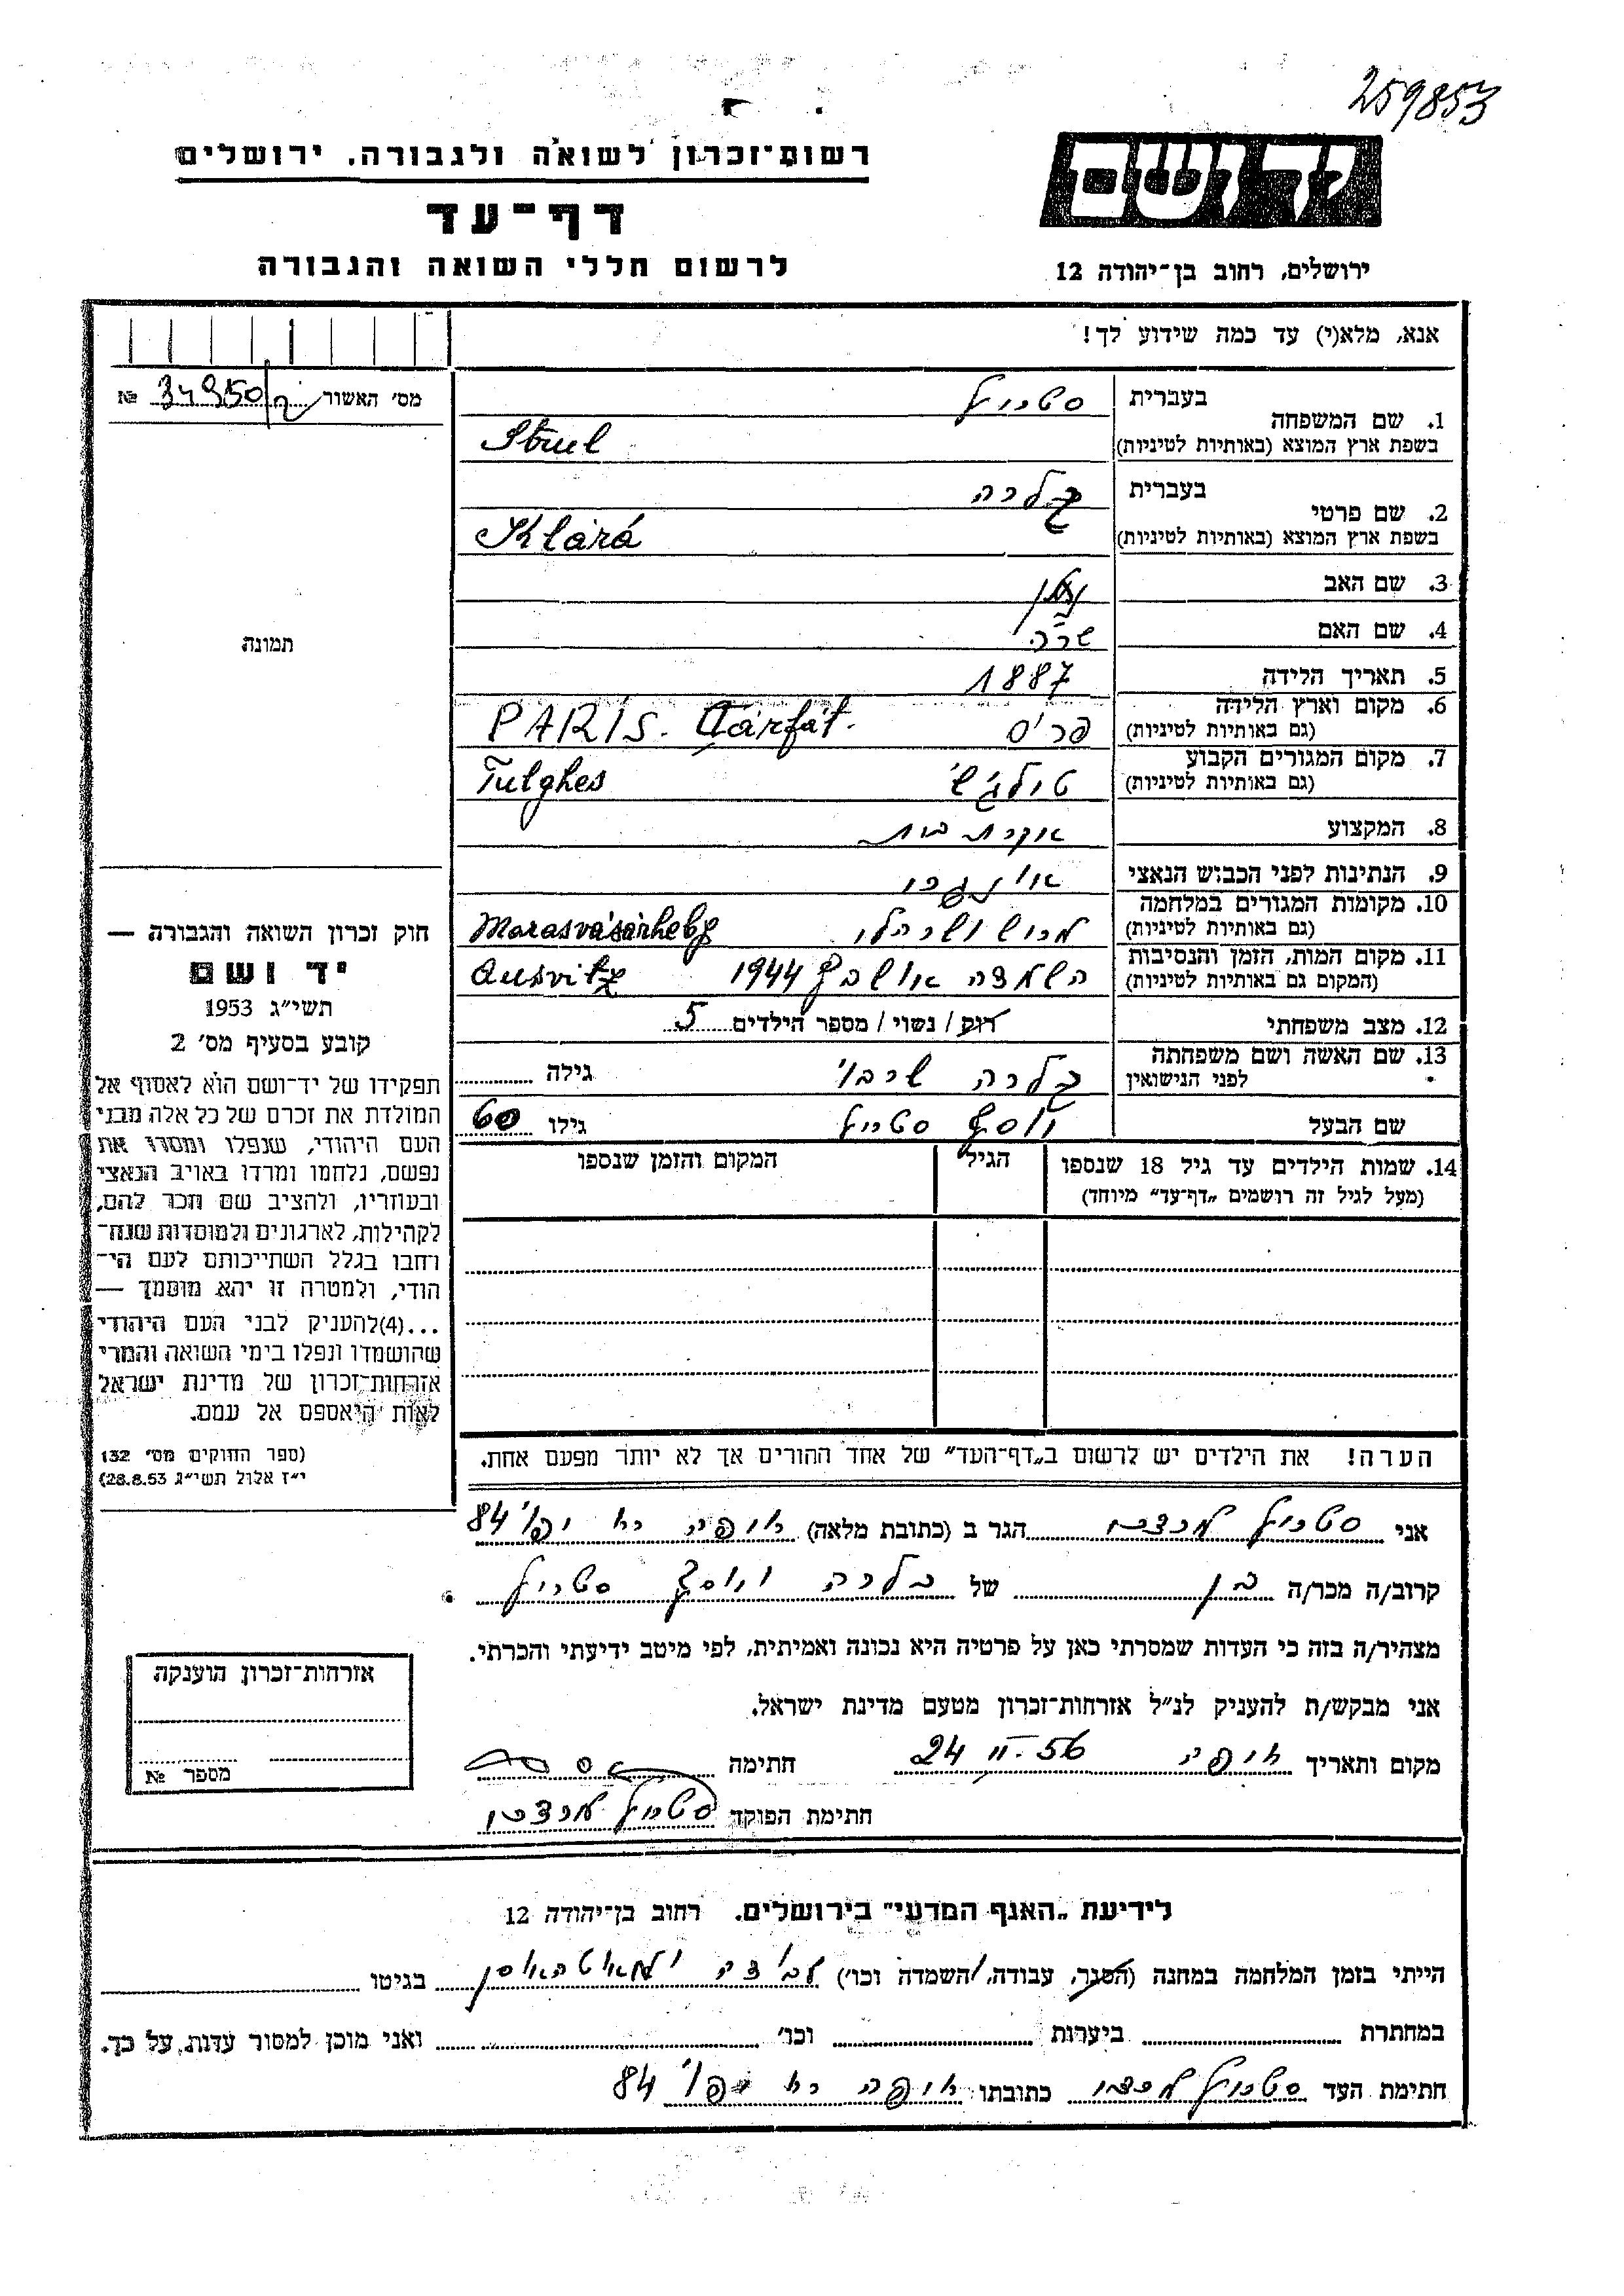 259853
יד ושם
רשות־זכרון לשואה ולגבורה, ירושלים
דף־עד
לרשום חללי השואה והגבורה
ירושלים, רחוב בן־יהודה 12
אנא, מלא(י) עד כמה שידוע לך!
מס׳ האשור № 34950
1. שם המשפחה בעברית סטרול
בשפת ארץ המוצא (באותיות לטיניות) Strul
2. שם פרטי בעברית קלרה
בשפת ארץ המוצא (באותיות לטיניות) Klárá
3. שם האב
4. שם האם שרה
5. תאריך הלידה 1887
6. מקום וארץ הלידה (גם באותיות לטיניות) פריס PARIS. Çárfát.
7. מקום המגורים הקבוע (גם באותיות לטיניות) טולגש Tulghes
8. המקצוע עקרת בית
9. הנתינות לפני הכבוש הנאצי
10. מקומות המגורים במלחמה (גם באותיות לטיניות) Marasvásárhely
11. מקום המות, הזמן והנסיבות (המקום גם באותיות לטיניות) השמדה 1944 Ausvitz
12. מצב משפחתי רוק / נשוי / מספר הילדים 5
13. שם האשה ושם משפחתה לפני הנישואין קלרה גילה
שם הבעל יוסף סטרול גילו 60
14. שמות הילדים עד גיל 18 שנספו
(מעל לגיל זה רושמים „דף־עד” מיוחד)
הגיל
המקום והזמן שנספו
הערה! את הילדים יש לרשום ב„דף־העד” של אחד ההורים אך לא יותר מפעם אחת.
תמונה
חוק זכרון השואה והגבורה —
יד ושם
תשי״ג 1953
קובע בסעיף מס׳ 2
תפקידו של יד־ושם הוא לאסוף אל
המולדת את זכרם של כל אלה מבני
העם היהודי, שנפלו ומסרו את
נפשם, נלחמו ומרדו באויב הנאצי
ובעוזריו, ולהציב שם וזכר להם,
לקהילות, לארגונים ולמוסדות שנח־
רחבו בגלל השתייכותם לעם הי־
הודי, ולמטרה זו יהא מוסמך —
...(4)להעניק לבני העם היהודי
שהושמדו ונפלו בימי השואה והמרי
אזרחות־זכרון של מדינת ישראל
לאות היאספם אל עמם.
(ספר החוקים מס׳ 132
י״ז אלול תשי״ג 28.8.53)
אני סטרול הגר ב (כתובת מלאה) חיפה 84
קרוב/ה מכר/ה בן של קלרה ויוסף סטרול
מצהיר/ה בזה כי העדות שמסרתי כאן על פרטיה היא נכונה ואמיתית, לפי מיטב ידיעתי והכרתי.
אני מבקש/ת להעניק לנ״ל אזרחות־זכרון מטעם מדינת ישראל.
מקום ותאריך חיפה 24 II. 56 חתימה
חתימת הפוקד סטרול
אזרחות־זכרון הוענקה
מספר №
לידיעת „האגף המדעי” בירושלים. רחוב בן־יהודה 12
הייתי בזמן המלחמה במחנה (הסגר, עבודה, השמדה וכו׳) בגיטו
במחתרת ביערות וכו׳ ואני מוכן למסור עדות, על כך.
חתימת העד סטרול כתובתו חיפה 84